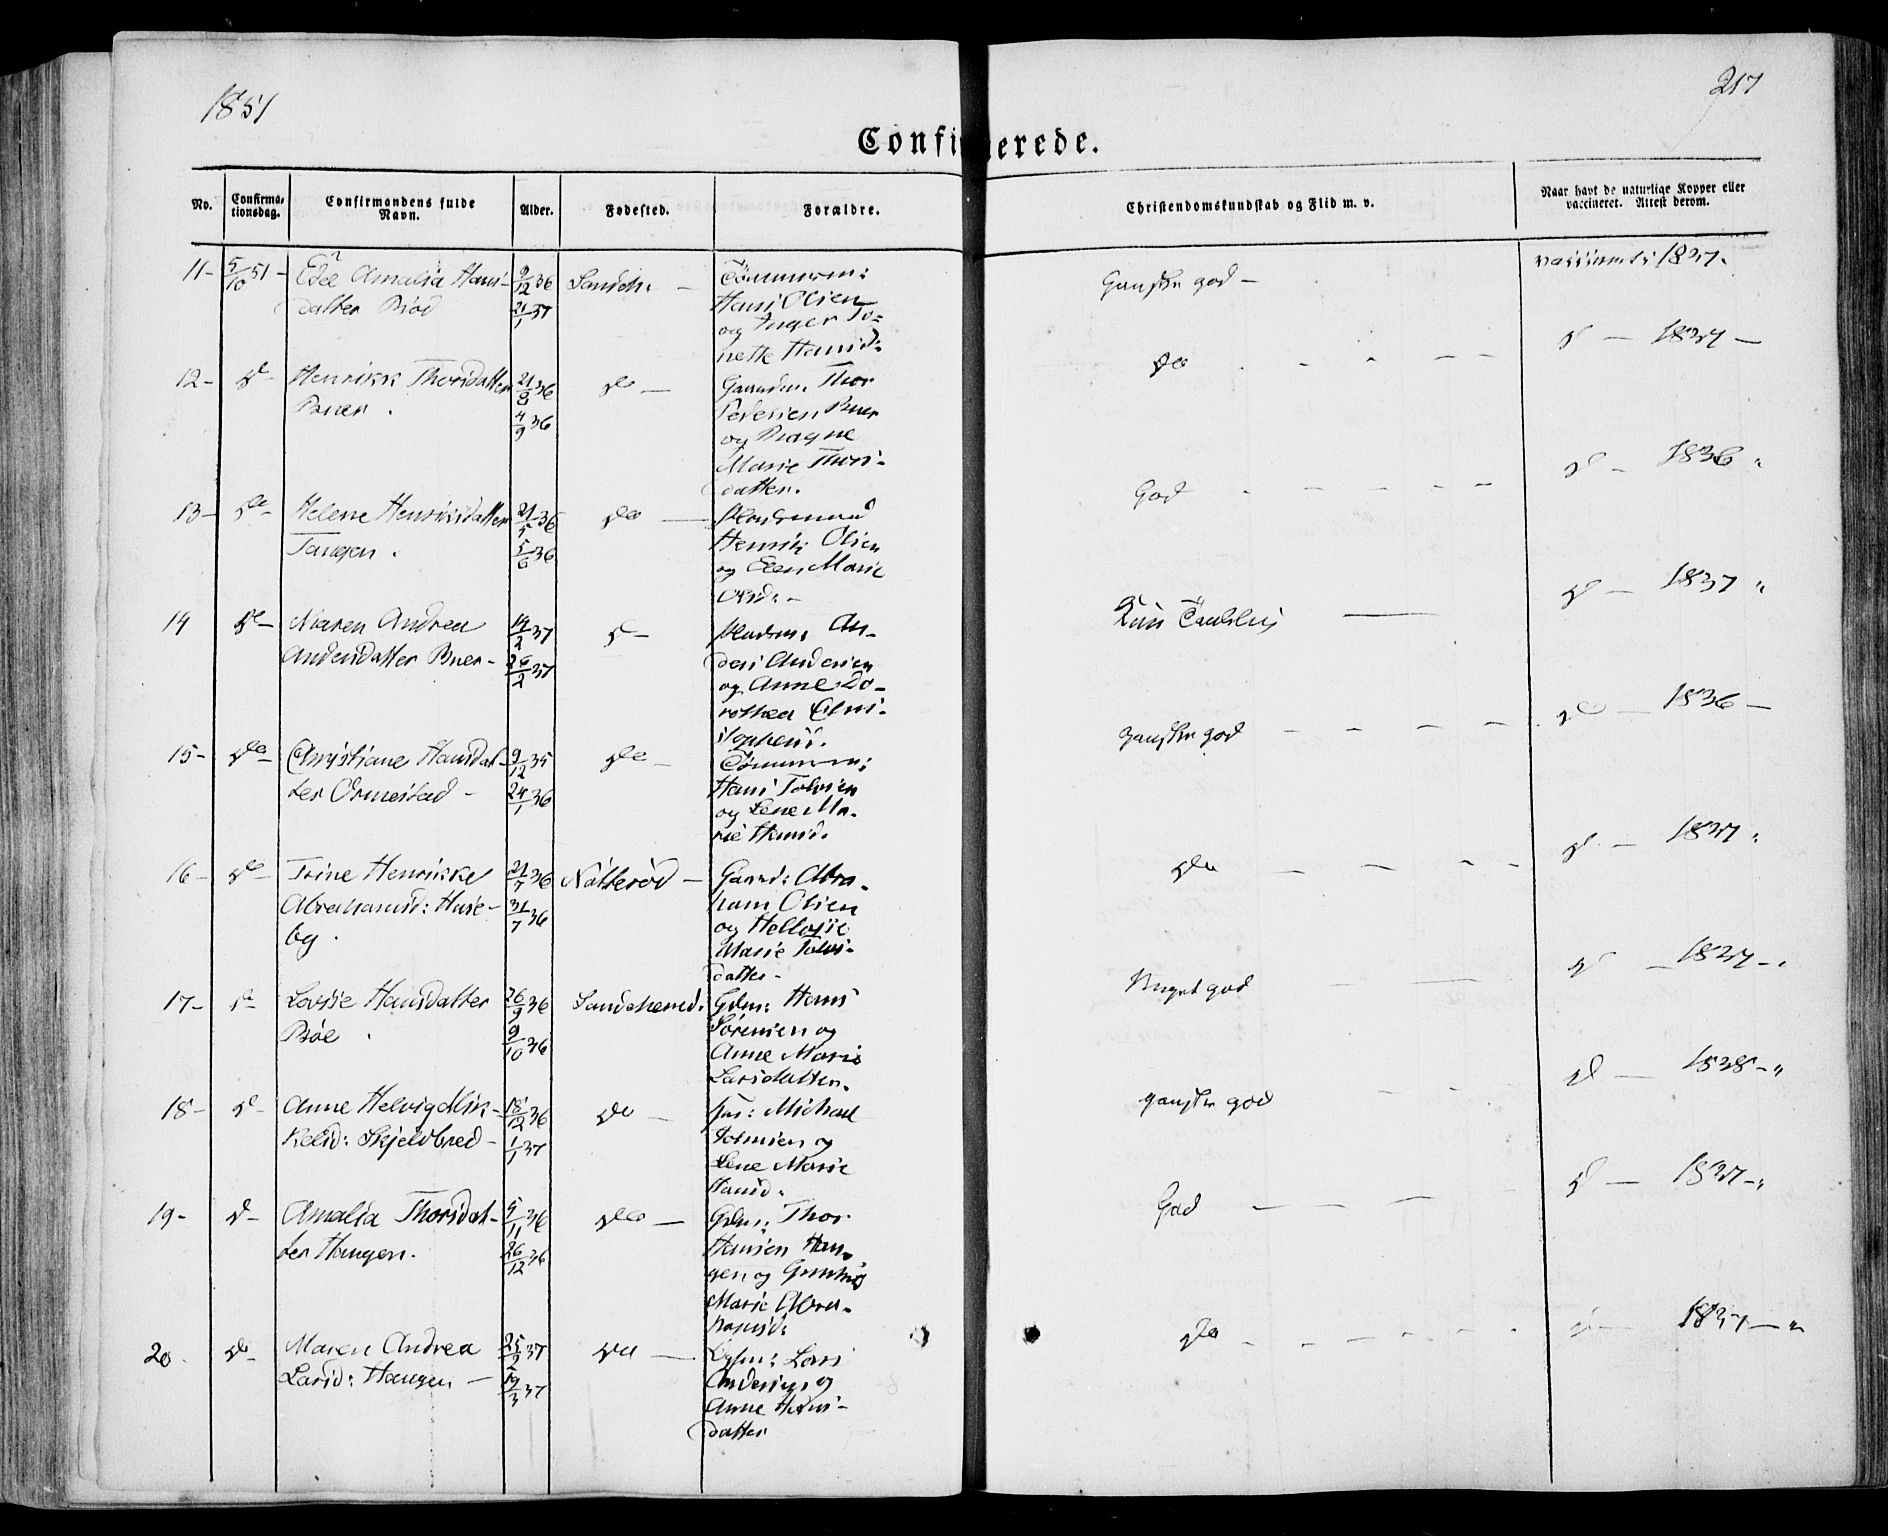 1851
217
Confirmerede.
No.
Confirma-
tionsdag.
Confirmandens fulde
Navn.
Alder.
Fødested.
Forældre.
Christendomskundskab og Flid m. v.
Naar havt de naturlige Kopper eller
vaccineret. Attest derom.
11- 5/10 51- Amalia Hans-
datter
9/12 36
21/1 37
Tømmerm:
Hans Olsen
og Inger To=
nette Hansd:
Ganske god -
1837.
12- Do- Henrikke Thorsdatter
Buer.
4/9 36
Do -
Gaardm. Thor
Pedersen Buer
og Ragne
Marie Thors-
datter.
Do
D - 1837 -
13- Do- Helene Henriksdatter
Tangen.
21/5 36
5/6 36
Do -
Henrik Olsen
og Elen Marie
Olsd: -
God
Do - 1836 "
14 Do- Maren Andrea
Andersdatter Buer-
14/2 37
26/2 37
Do -
An-
ders Andersen
og Anne Do-
rothea Chri-
stophersd.
Do - 1837 "
15- Do- Christiane Hansdat-
ter Ormestad -
9/12 35
24/1 36
Do -
Tømmerm:
Hans Tolvsen
og Lene Ma-
rie Hansd.
ganske god
Do - 1836 -
16- Do- Trine Henrikke
Abrahamsd: Huse-
by.
21/7 36
31/7 36
Nøtterød -
Gaard: Abra-
ham Olsen
og
Marie Tolvs-
datter-
Do
Do - 1837 "
17- Do- Lovise Hansdatter
Bøe.
26/9 36
9/10 36
Sandeherred.
Gdm: Hans
Sørensen og
Anne Marie
Larsdatter.
Meget god
Do - 1837 -
18- Do- Anne Helvig Mik-
kelsd: Skjeldbred-
18/12 36
1/1 37
Do -
Michael
og
Lene Marie
Hansd:
ganske god
Do - 1838 - "
19- Do- Amalia Thorsdat-
ter Haugen.
5/11 36
26/12 36
Do -
Gdm: Thor
Hansen Hau-
gen og
Marie Abra-
hamsd:
God
Do - 1837 - "
20. Do- Maren Andrea
Larsd: Haugen -
25/2 37
19/3 37
Do -
Lars
Andersen og
Anne Hans-
datter
Do
1837 - "